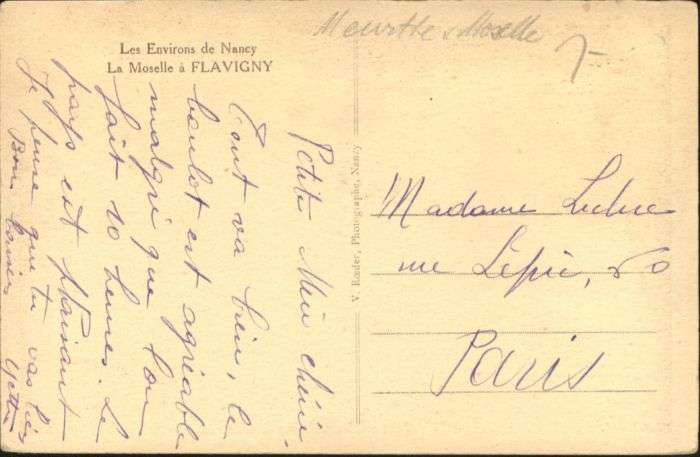 Les Environs de Nancy
La Moselle à FLAVIGNY
Meurthe & Moselle
7-
Petite Mimi chérie,
Tout va bien, le
boulot est agréable
malgré que l'on
fait 10 heures. Le
pays est plaisant
Je pense que tu vas bien
Bons baisers
V. Rœder, Photographe, Nancy
Madame Leduc
rue Lepic, 50
Paris